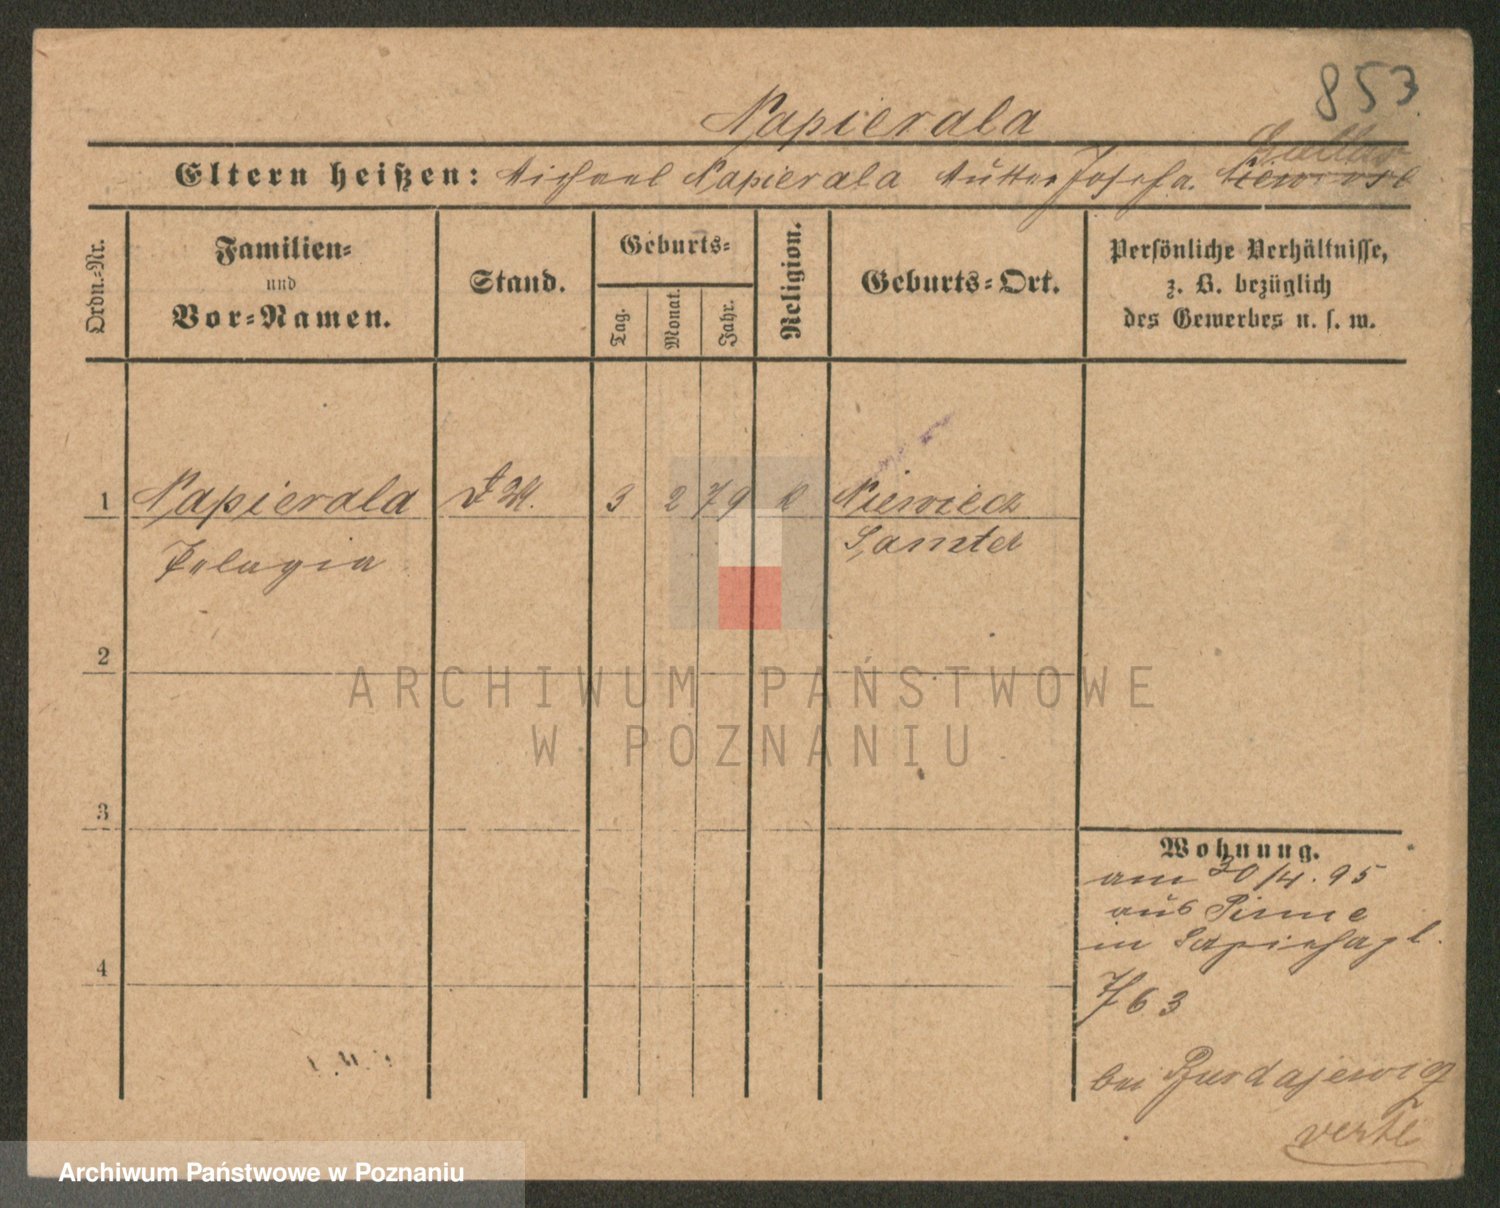 853
Napierala
Eltern heißen: Michael Napierala Mutter Josefa
Ordn.-Nr.
Familien- und Vor-Namen.
Stand.
Geburts-
Tag.
Monat.
Jahr.
Religion.
Geburts-Ort.
Persönliche Verhältnisse,
z. B. bezüglich
des Gewerbes u. s. w.
1 Napierala 3 2 79 k Niewiecz
Pelagia Samter
2
ARCHIWUM PAŃSTWOWE
W POZNANIU
3
Wohnung.
am 30/4. 95
aus Pinne
in Sapiehapl.
7/63
4
bei Burdajewicz
verte
Archiwum Państwowe w Poznaniu